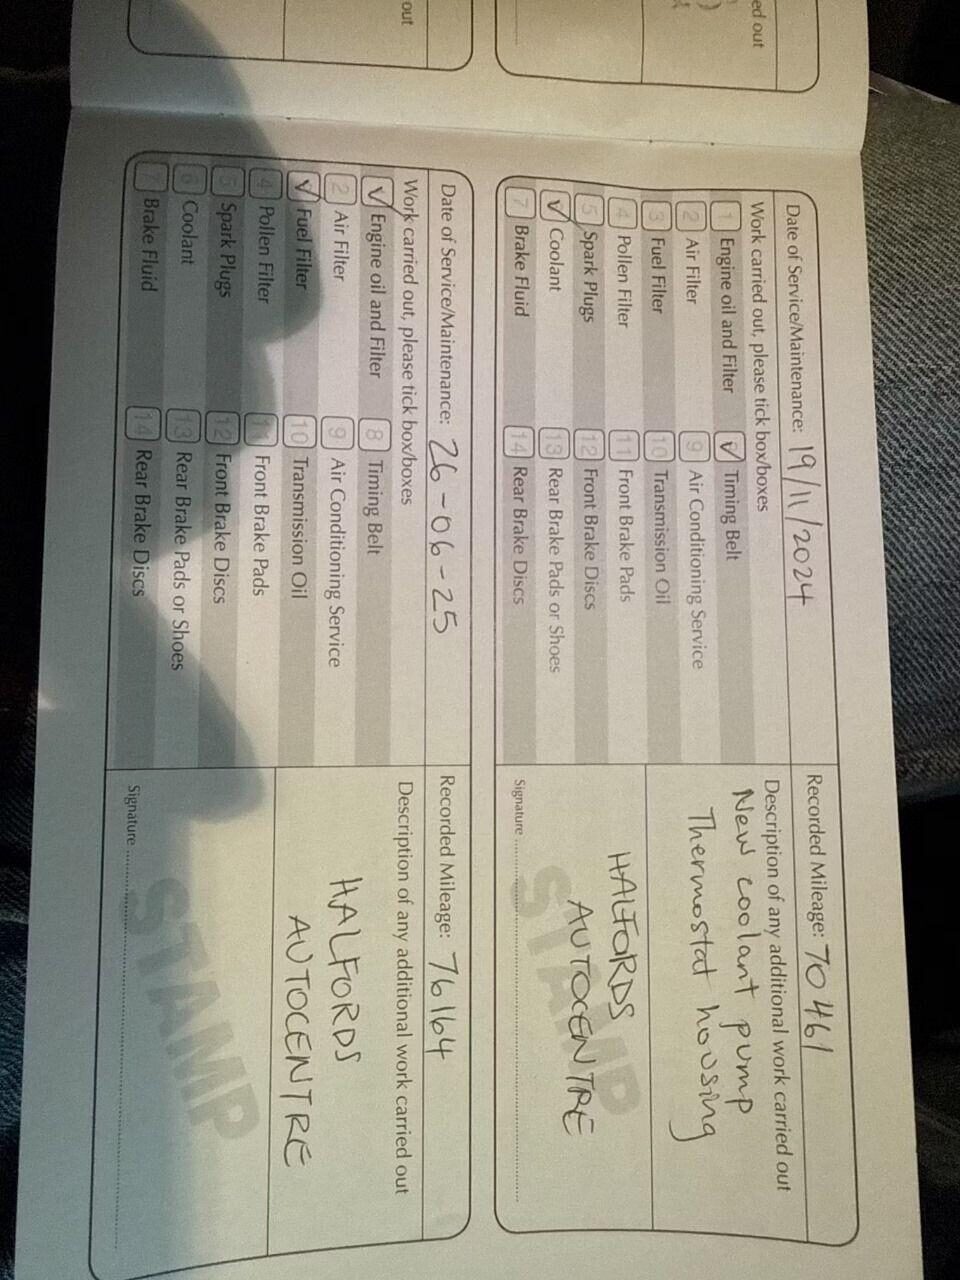 ed out
Date of Service/Maintenance: 19/11/2024
Recorded Mileage: 70 461
Work carried out, please tick box/boxes
Description of any additional work carried out
1 Engine oil and Filter
✓ Timing Belt
New coolant pump
2 Air Filter
9 Air Conditioning Service
Thermostat housing
3 Fuel Filter
10 Transmission Oil
4 Pollen Filter
11 Front Brake Pads
HALFORDS
5 Spark Plugs
12 Front Brake Discs
AUTOCENTRE
✓ Coolant
13 Rear Brake Pads or Shoes
STAMP
7 Brake Fluid
14 Rear Brake Discs
Signature
out
Date of Service/Maintenance: 26-06-25
Recorded Mileage: 76164
Work carried out, please tick box/boxes
Description of any additional work carried out
✓ Engine oil and Filter
8 Timing Belt
2 Air Filter
9 Air Conditioning Service
HALFORDS
✓ Fuel Filter
10 Transmission Oil
AUTOCENTRE
4 Pollen Filter
11 Front Brake Pads
5 Spark Plugs
12 Front Brake Discs
6 Coolant
13 Rear Brake Pads or Shoes
STAMP
7 Brake Fluid
14 Rear Brake Discs
Signature